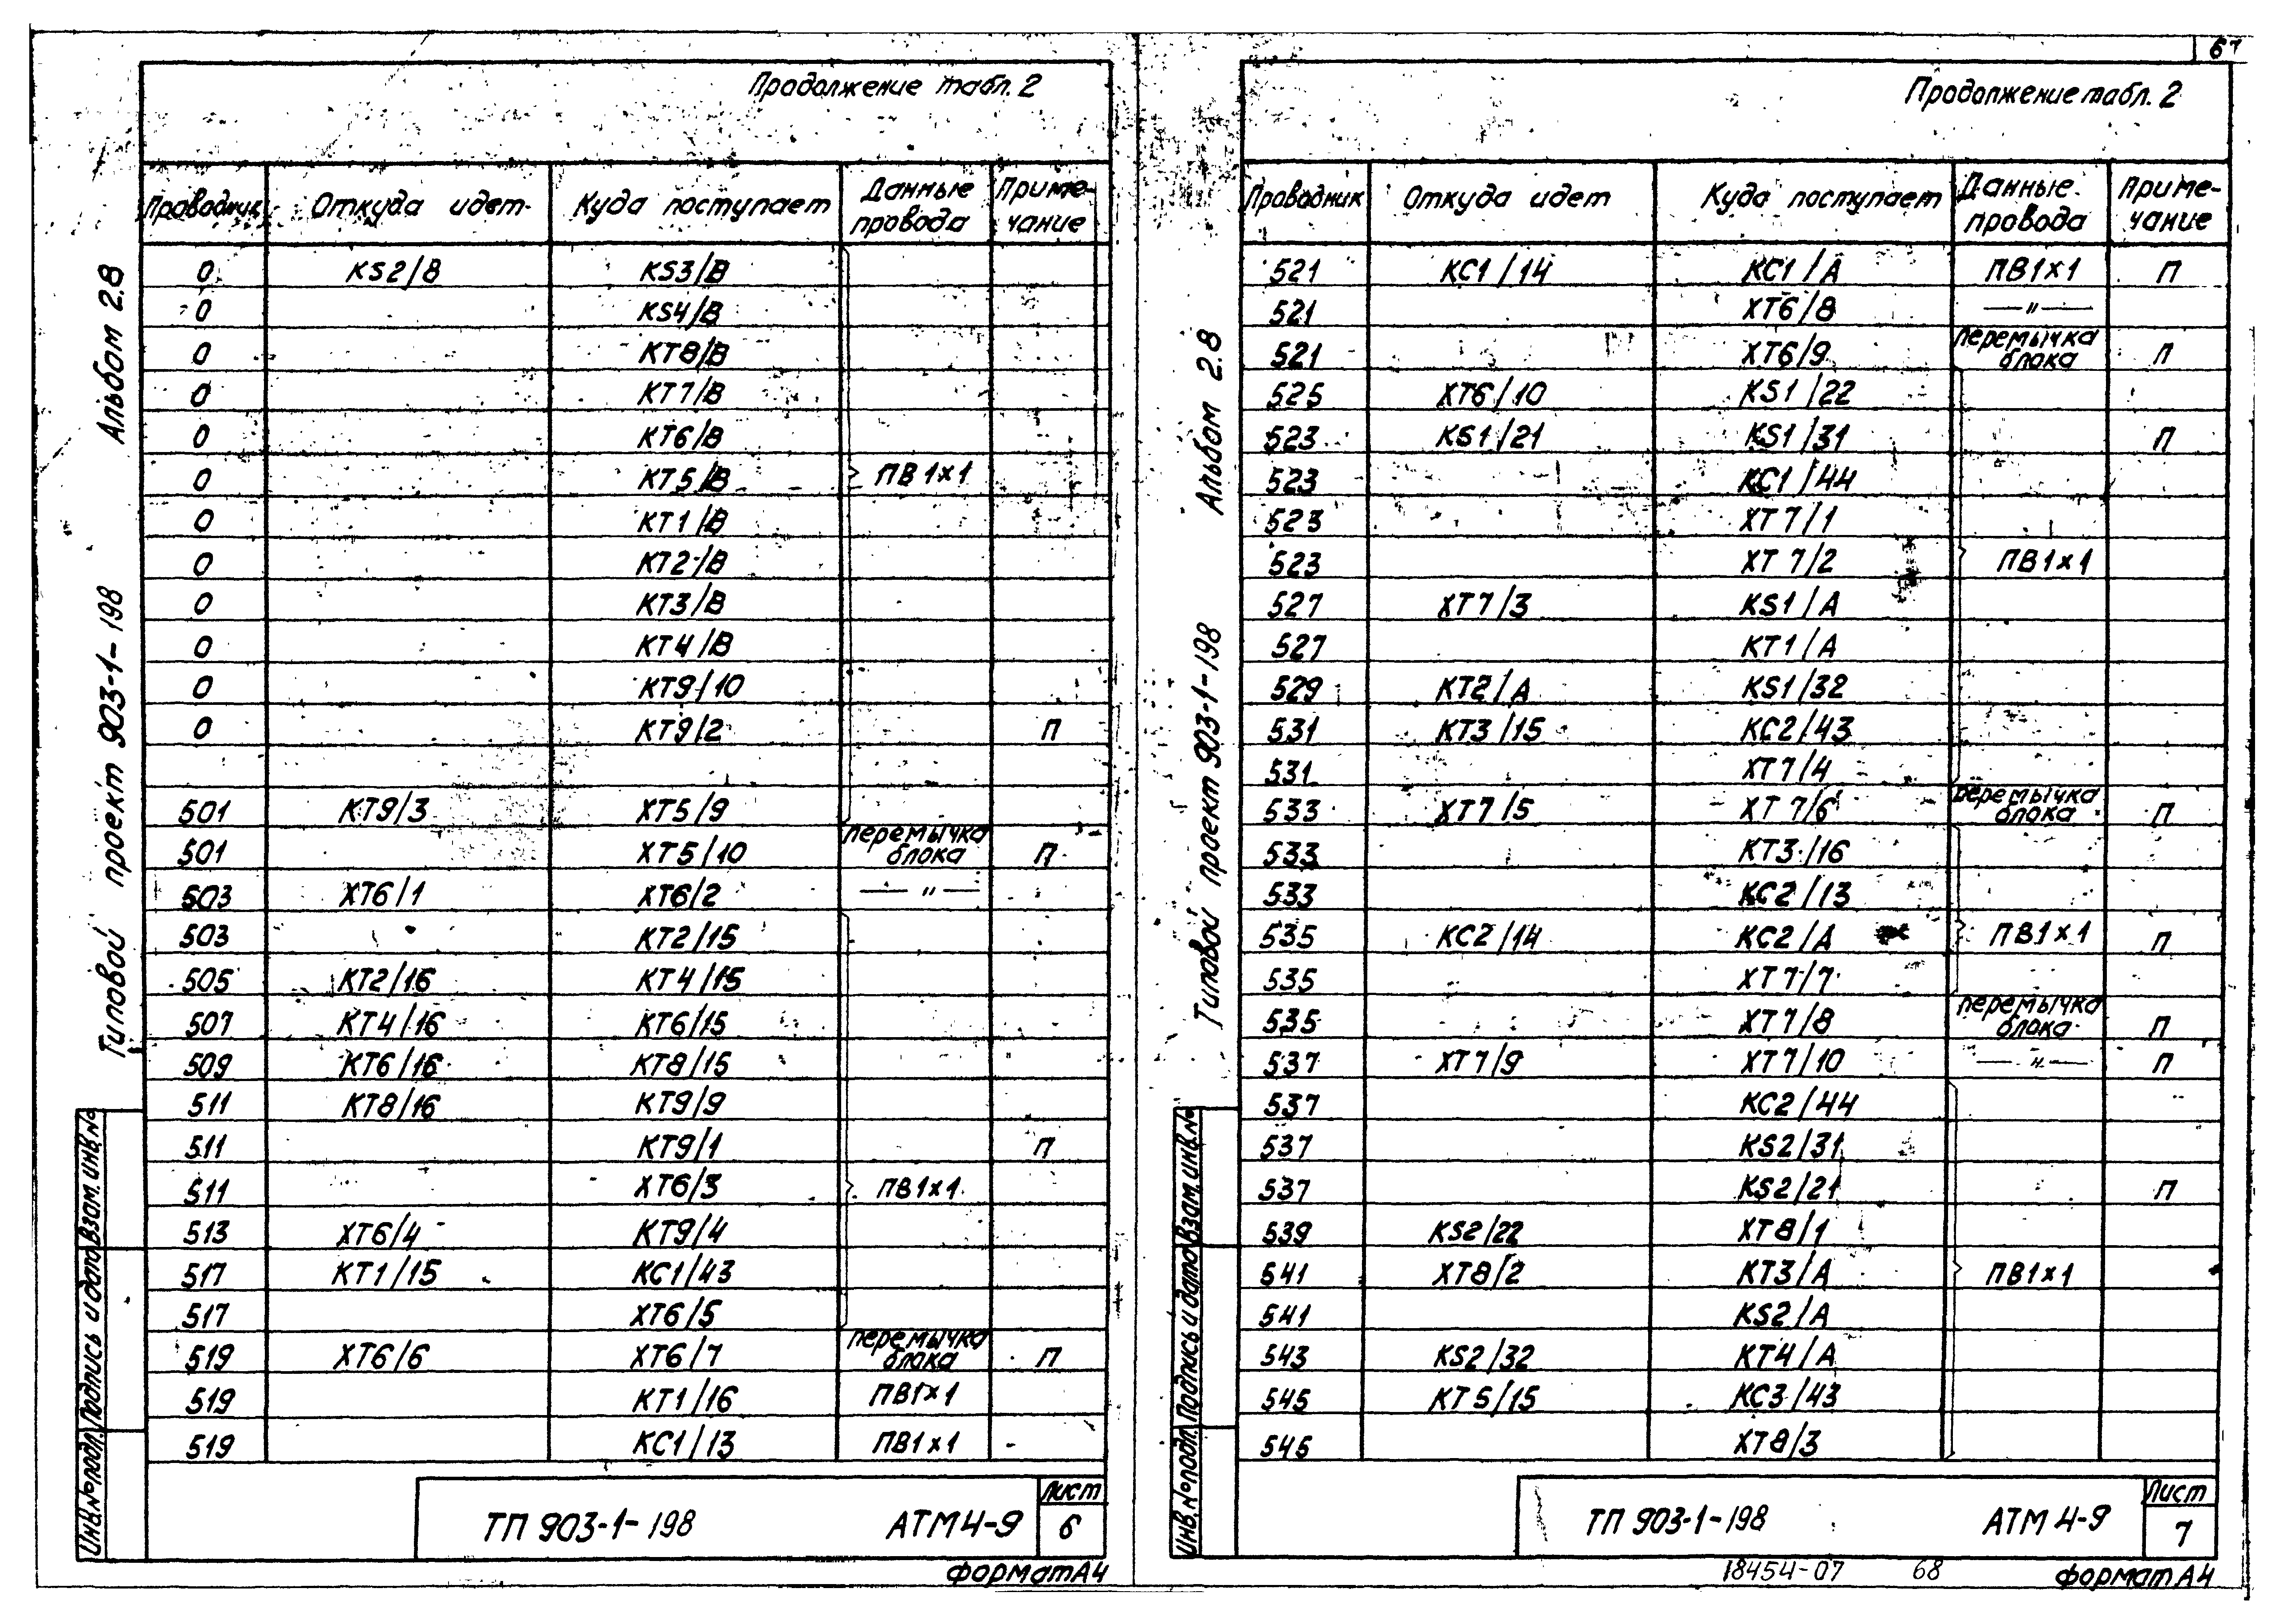 67
Продолжение табл. 2
Проводник Откуда идет Куда поступает Данные провода Приме-чание
0 KS2/8 KS3/B
0 KS4/B
0 KT8/B
0 KT7/B
0 KT6/B
0 KT5/B ПВ 1×1
0 KT1/B
0 KT2/B
0 KT3/B
0 KT4/B
0 KT9/10
0 KT9/2 П
501 KT9/3 XT5/9
501 XT5/10 перемычка блока П
503 XT6/1 XT6/2 —"—
503 KT2/15
505 KT2/16 KT4/15
507 KT4/16 KT6/15
509 KT6/16 KT8/15
511 KT8/16 KT9/9
511 KT9/1 П
511 XT6/3 ПВ1×1
513 XT6/4 KT9/4
517 KT1/15 KC1/43
517 XT6/5
519 XT6/6 XT6/7 перемычка блока П
519 KT1/16 ПВ1×1
519 KC1/13 ПВ1×1
ТП 903-1-198 АТМ4-9 Лист 6
Формат А4
Типовой проект 903-1-198 Альбом 2.8
Инв.№подл. Подпись и дата Взам.инв.№
Продолжение табл. 2
Проводник Откуда идет Куда поступает Данные провода Приме-чание
521 KC1/14 KC1/A ПВ1×1 П
521 XT6/8 —"—
521 XT6/9 перемычка блока П
525 XT6/10 KS1/22
523 KS1/21 KS1/31 П
523 KC1/44
523 XT7/1
523 XT7/2 ПВ1×1
527 XT7/3 KS1/A
527 KT1/A
529 KT2/A KS1/32
531 KT3/15 KC2/43
531 XT7/4
533 XT7/5 XT7/6 перемычка блока П
533 KT3/16
533 KC2/13
535 KC2/14 KC2/A ПВ1×1 П
535 XT7/7
535 XT7/8 перемычка блока П
537 XT7/9 XT7/10 —"— П
537 KC2/44
537 KS2/31
537 KS2/21 П
539 KS2/22 XT8/1
541 XT8/2 KT3/A ПВ1×1
541 KS2/A
543 KS2/32 KT4/A
545 KT5/15 KC3/43
545 XT8/3
ТП 903-1-198 АТМ4-9 Лист 7
18454-07 68 Формат А4
Типовой проект 903-1-198 Альбом 2.8
Инв.№подл. Подпись и дата Взам.инв.№